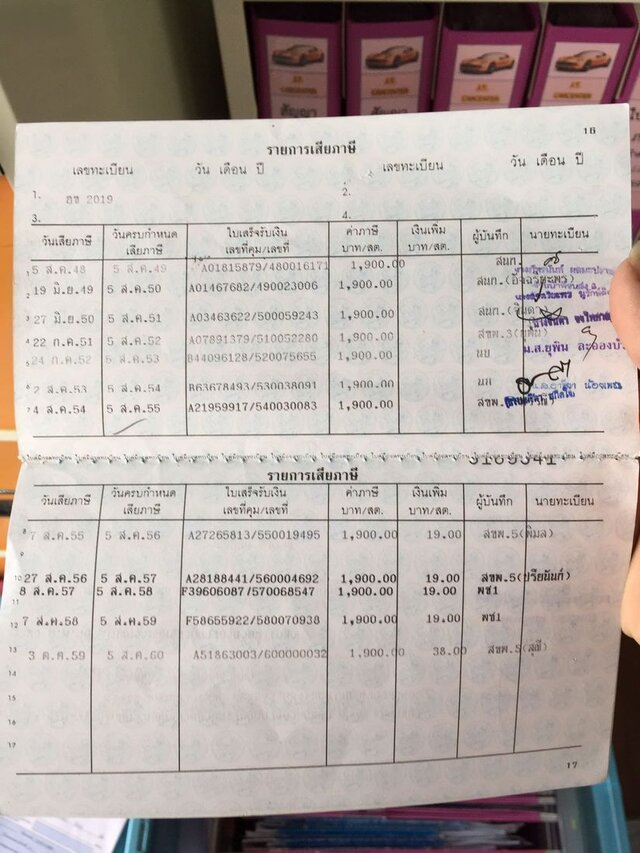 16
รายการเสียภาษี
เลขทะเบียน วัน เดือน ปี เลขทะเบียน วัน เดือน ปี
1. อข 2019 2.
3. 4.
วันเสียภาษี วันครบกำหนดเสียภาษี ใบเสร็จรับเงิน เลขที่คุม/เลขที่ ค่าภาษี บาท/สต. เงินเพิ่ม บาท/สต. ผู้บันทึก นายทะเบียน
1 5 ส.ค.48 5 ส.ค.49 A01815879/480016171 1,900.00 สนก.
2 19 มิ.ย.49 5 ส.ค.50 A01467682/490023006 1,900.00 สนก.(อัจฉราพร)
3 27 มิ.ย.50 5 ส.ค.51 A03463622/500059243 1,900.00 สนก.
4 22 ก.ค.51 5 ส.ค.52 A07891379/510052280 1,900.00 สขพ.3
5 24 ก.ค.52 5 ส.ค.53 B44096128/520075655 1,900.00 นย น.ส.ยุพิน
6 2 ส.ค.53 5 ส.ค.54 B63678493/530038091 1,900.00 นก
7 4 ส.ค.54 5 ส.ค.55 A21959917/540030083 1,900.00 สขพ.
รายการเสียภาษี
วันเสียภาษี วันครบกำหนดเสียภาษี ใบเสร็จรับเงิน เลขที่คุม/เลขที่ ค่าภาษี บาท/สต. เงินเพิ่ม บาท/สต. ผู้บันทึก นายทะเบียน
8 7 ส.ค.55 5 ส.ค.56 A27265813/550019495 1,900.00 19.00 สขพ.5(พิมล)
9
10 27 ส.ค.56 5 ส.ค.57 A28188441/560004692 1,900.00 19.00 สขพ.5(ปรียนันท์)
8 ส.ค.57 5 ส.ค.58 F39606087/570068547 1,900.00 19.00 พช1
11
12 7 ส.ค.58 5 ส.ค.59 F58655922/580070938 1,900.00 19.00 พช1
13 3 ต.ค.59 5 ส.ค.60 A51863003/600000032 1,900.00 38.00 สขพ.5(สุณี)
14
15
16
17
17